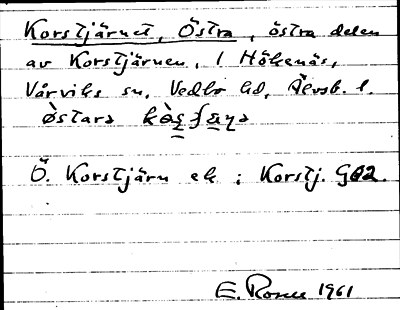 Korstjärnet, Östra, östra delen
av Korstjärnen, 1 Hökenäs,
Vårviks sn, Vedbo hd, Älvsb. l.
östara
Ö. Korstjärn ek ; Korstj. G02.
E. Rosell 1961